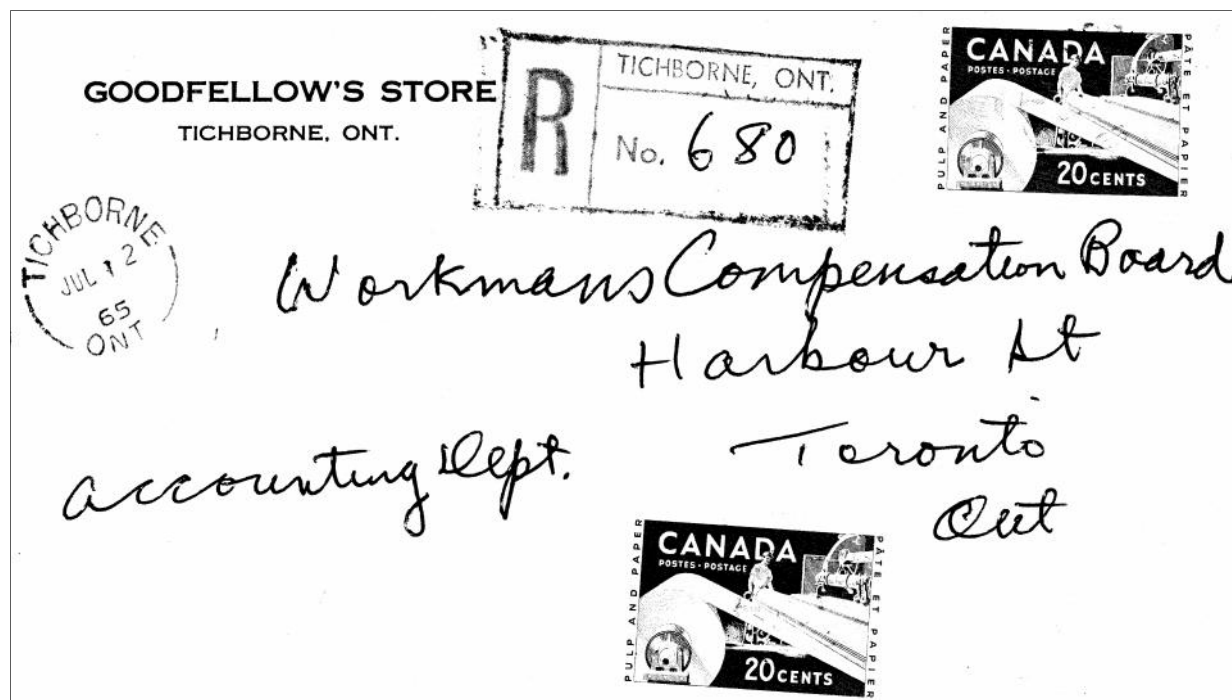 GOODFELLOW'S STORE
TICHBORNE, ONT.
R
TICHBORNE, ONT.
No. 680
CANADA
POSTES - POSTAGE
PULP AND PAPER
PÂTE ET PAPIER
20 CENTS
TICHBORNE
JUL 12
65
ONT
Workmans Compensation Board
Harbour St
Toronto
Ont
Accounting Dept.
CANADA
POSTES - POSTAGE
PULP AND PAPER
PÂTE ET PAPIER
20 CENTS